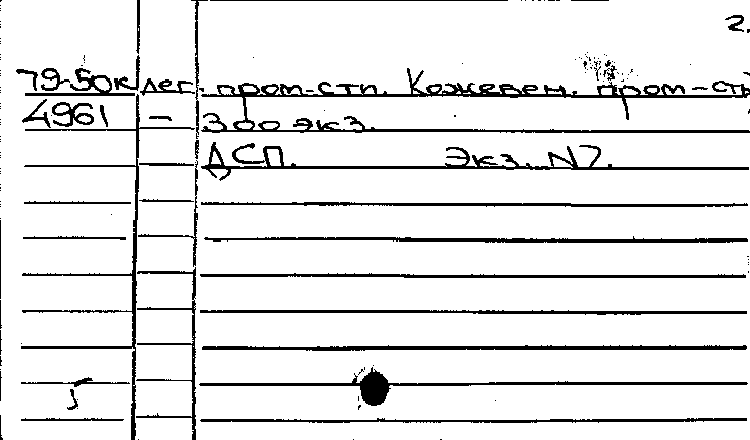 2.
79-50к лег. пром-сти. Кожевен. пром-сть
4961 – 300 экз.
ДСП. Экз. N7.
5